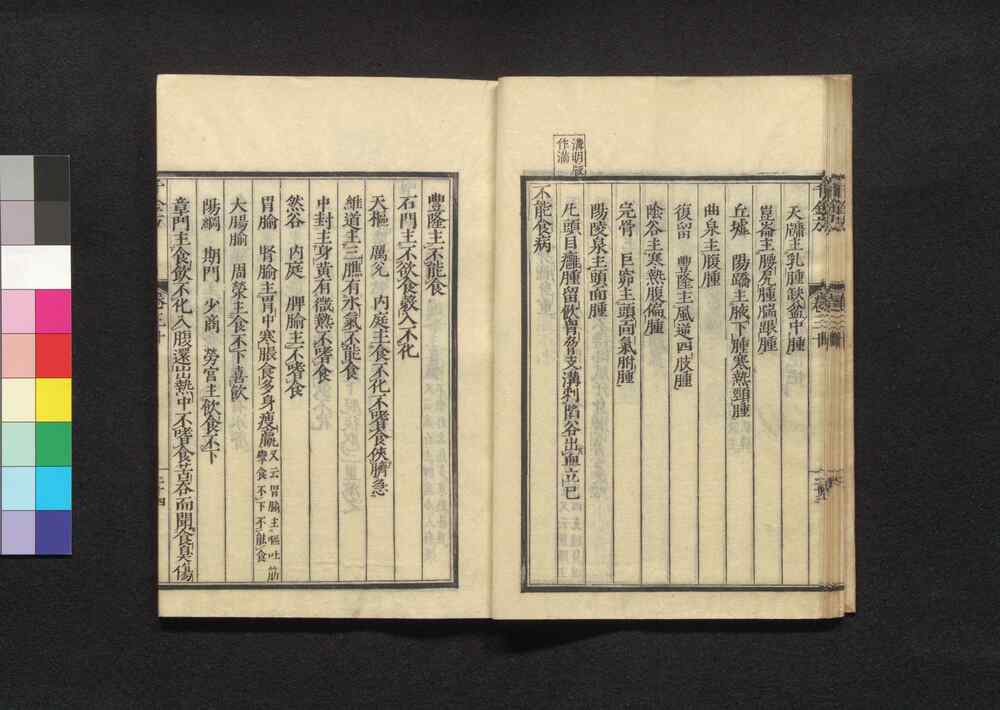 天牖主乳腫缺盆中腫
崑崙主腰尻腫腨跟腫
丘墟　陽蹻主腋下腫寒熱頸腫
曲泉主腹腫
復留　豐隆主風逆四肢腫
陰谷主寒熱腹偏腫
完骨　巨窌主頭面氣胕腫
陽陵泉主頭面腫
凡頭目癰腫留飲胷脅支溝刺陷谷出血立已
溝明版
作滿
不能食病
豐隆主不能食
石門主不欲食穀入不化
天樞　厲兌　內庭主食不化不嗜食俠臍急
維道主三膲有水氣不能食
中封主身黃有微熱不嗜食
然谷　內庭　脾腧主不嗜食
胃腧　腎腧主胃中寒脹食多身瘦羸又云胃腧主嘔吐筋
攣食不下不能食
大腸腧　周榮主食不下喜飲
陽綱　期門　少商　勞宮主飲食不下
章門主食飲不化入腹還出熱中不嗜食苦吞而聞食臭傷